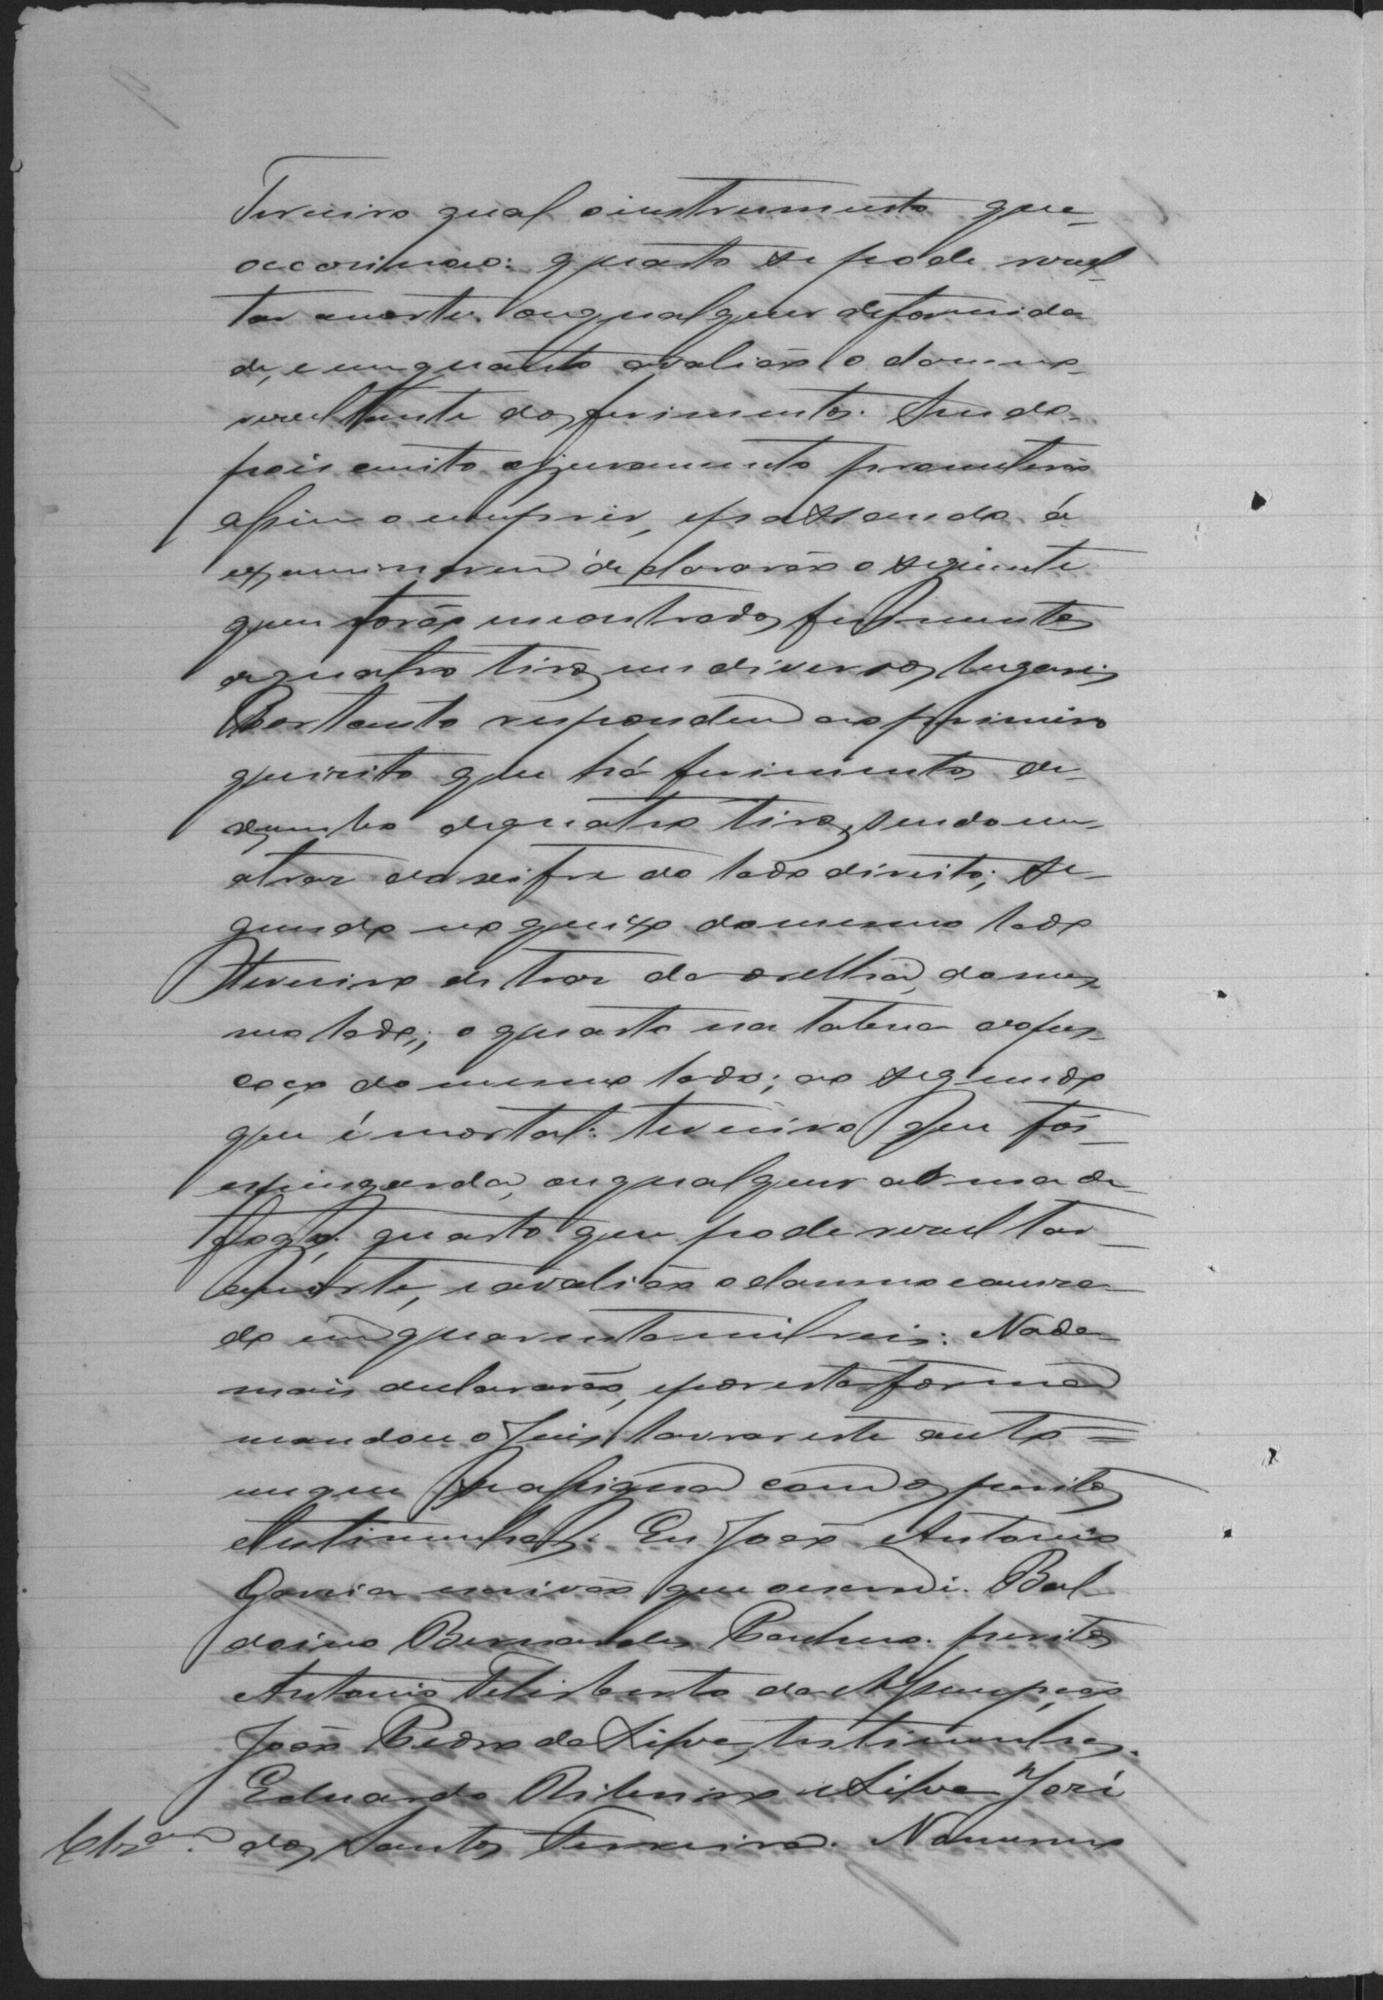 Terceiro qual o instrumento que
occorinaro: quarto se pode resul
tar morte ou qualquer deformida
de, e em quanto avalião o damno
resultante dos ferimentos. Sendo
pois aceito o juramento prometerão
assim o cumprir, e passando á
examinarem declararão o seguinte
que forão encontrados ferimentos
de quatro tiros em diversos lugares
Portanto respondem ao primeiro
quisito que há ferimentos de
chumbo de quatro tiros, sendo um
atraz do xifre do lado direito; se
gundo no queixo do mesmo lado
terceiro de traz da orelha do mes
mo lado; o quarto na taboa do pes
coço do mesmo lado; ao segundo
que é mortal: terceiro que foi
espingarda, ou qualquer arma de
fogo: quarto que pode resultar
morte, e avalião o damno causa
do em quarenta mil reis: Nada
mais declararão, e por esta forma
mandou o Juiz lavrar este auto =
em que se assigna com os peritos
e testimunhas. Eu João Antonio
Garcia escrivão que o escrevi. Bal
doino Bernardes Pacheco. peritos
Antonio Felisberto da Assumpção
João Pedro da Silva, testimunhas.
Eduardo Ribeiro e Silva José
dos Santos Terreira. Nomesmo